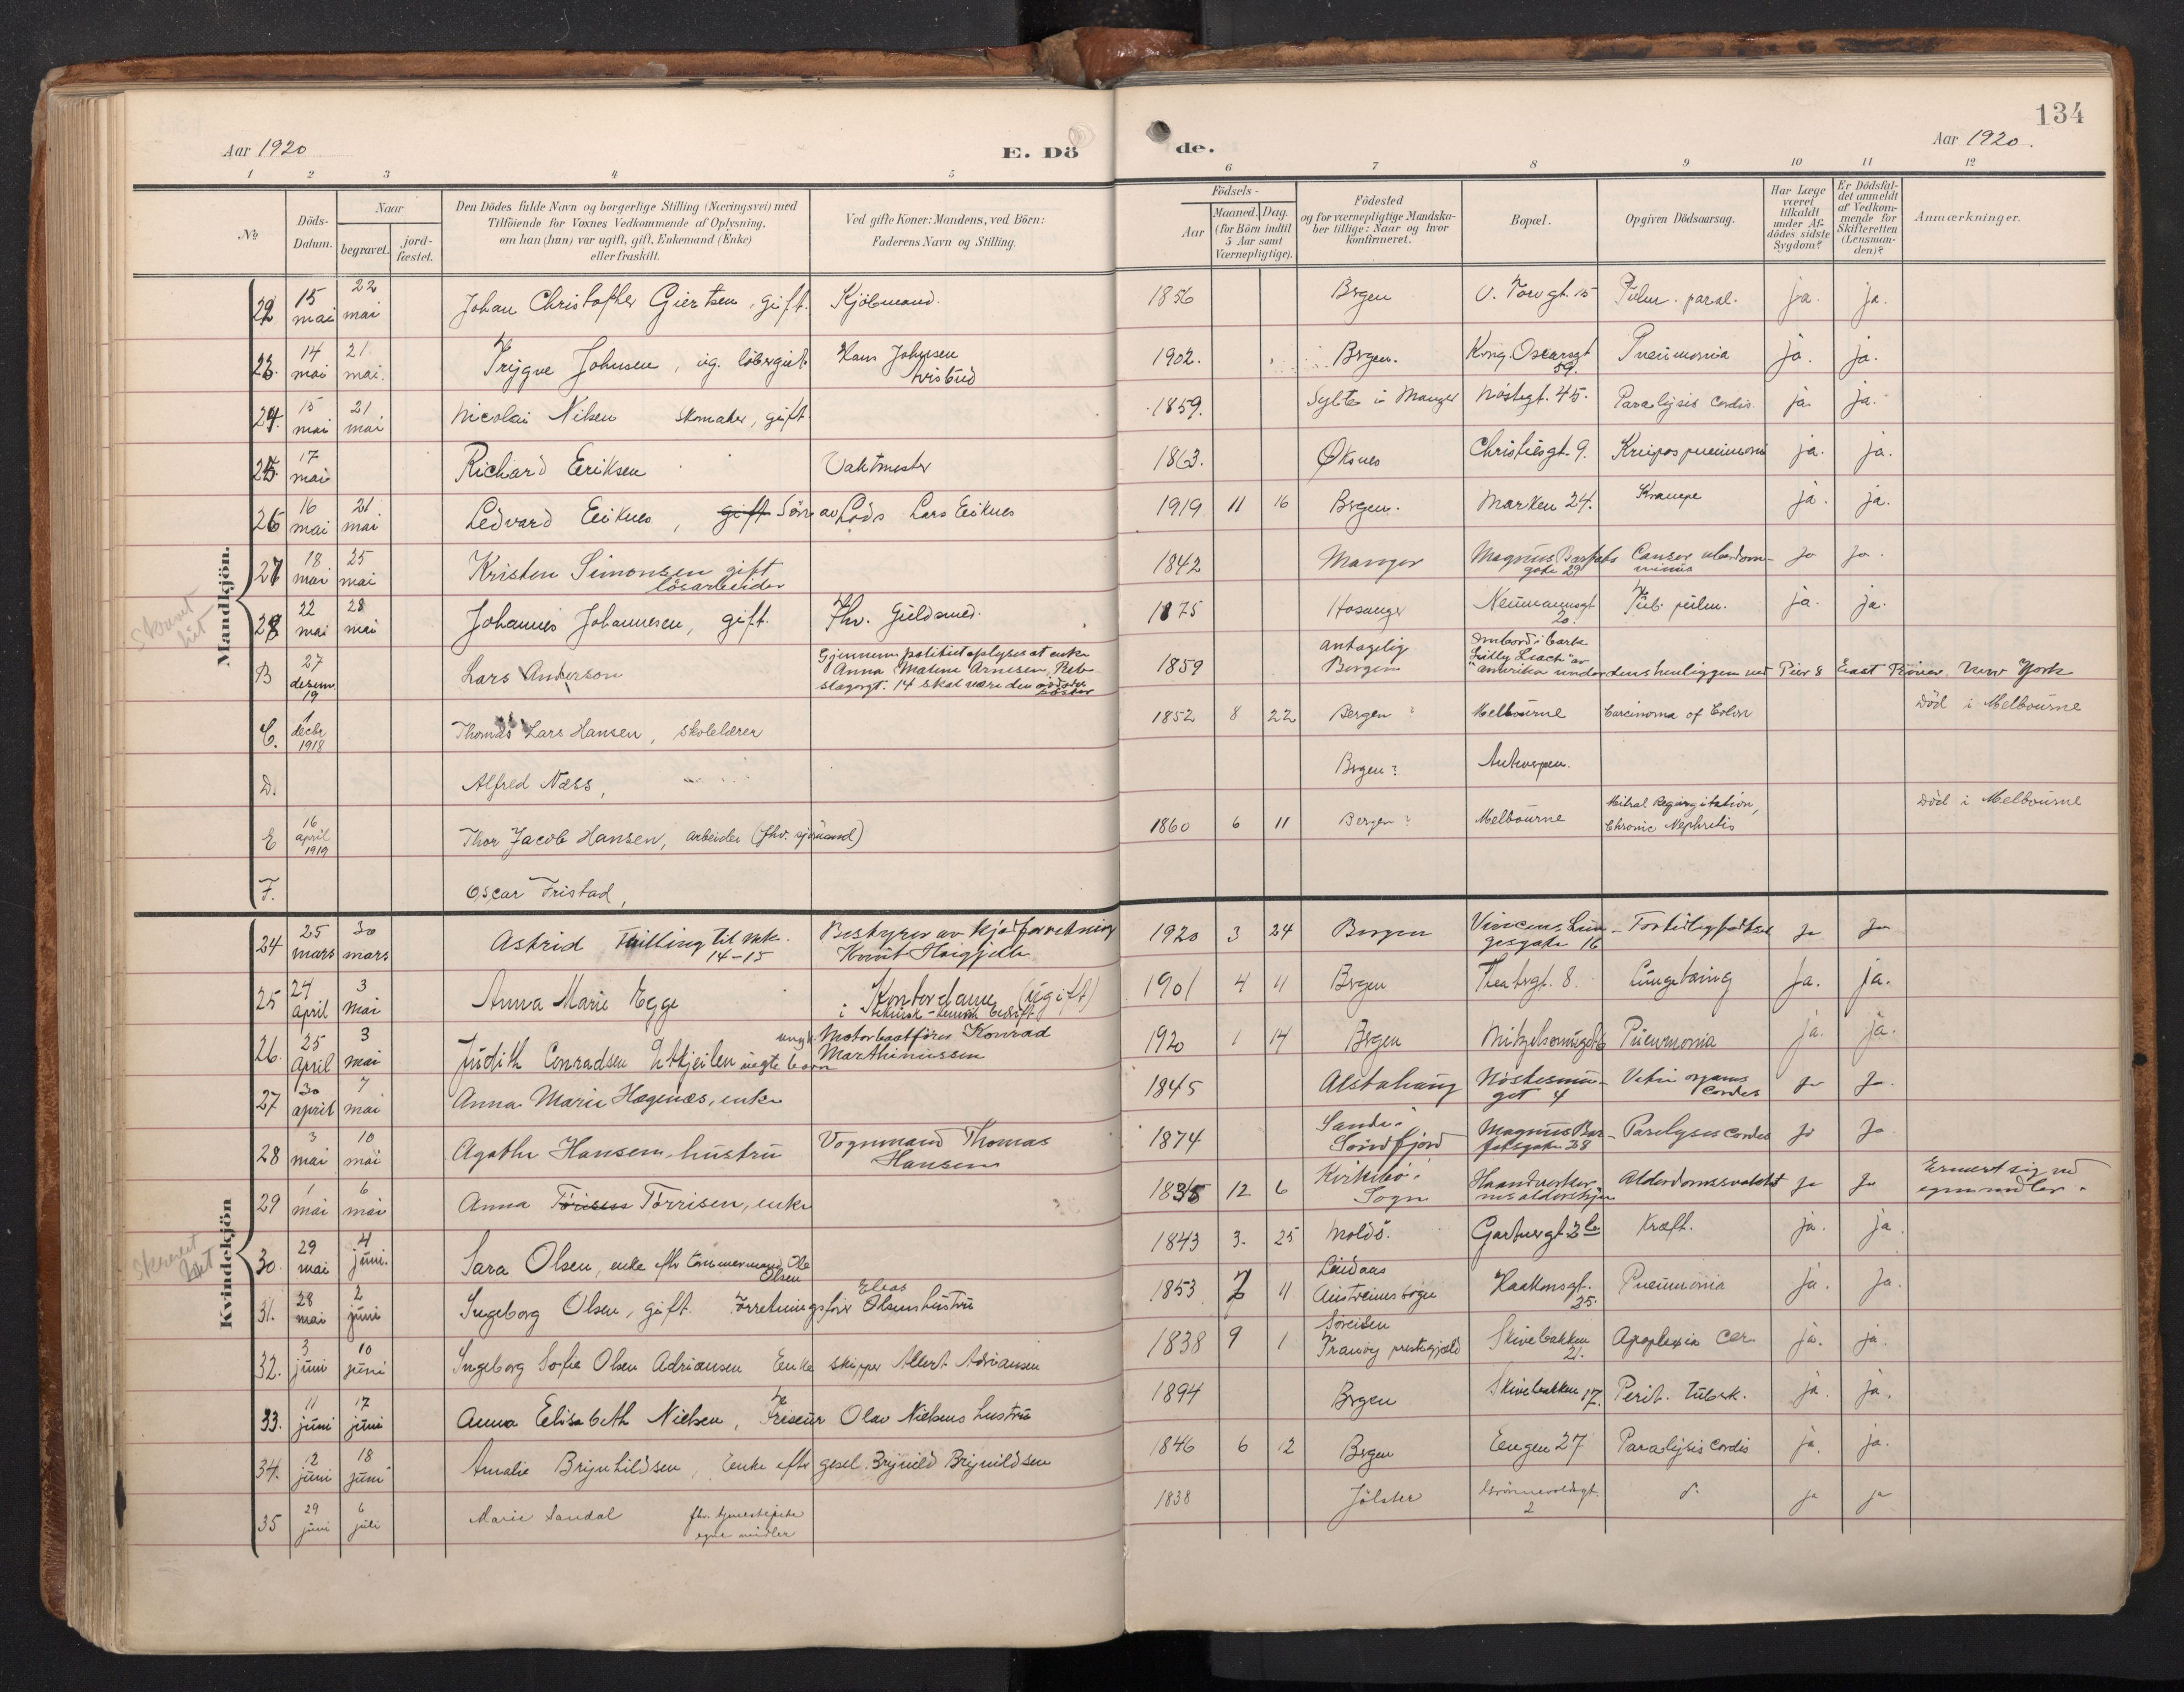 134
Aar 1920
E. Dö
de.
Aar 1920.
1 2 3 4 5 6 7 8 9 10 11 12
№
Döds-
Datum.
Naar
begravet.
jord-
fæstet.
Den Dödes fulde Navn og borgerlige Stilling (Næringsvei) med
Tilföiende for Voxnes Vedkommende af Oplysning,
om han (hun) var ugift, gift, Enkemand (Enke)
eller fraskilt.
Ved gifte Koner: Mandens, ved Börn:
Faderens Navn og Stilling.
Födsels-
Aar
Maaned. Dag.
(for Börn indtil
5 Aar samt
Værnepligtige).
Födested
og for værnepligtige Mandska-
ber tillige: Naar og hvor
konfirmeret.
Bopæl.
Opgiven Dödsaarsag.
Har Læge
været
tilkaldt
under Af-
dödes sidste
Sygdom?
Er Dödsfal-
det anmeldt
af Vedkom-
mende for
Skifteretten
(Lensman-
den)?
Anmærkninger.
Mandkjön.
22 15 mai 22 mai Johan Christopher Giertsen, gift. Kjöbmand. 1856 Bergen V. Torvgt. 15 Pulm. paral. ja. ja.
23. 14 mai 21 mai. Trygve Johnsen, ug. löbergut Hans Johnsen 1902. Bergen. Kong Oscarsgt 59. Pneumonia ja. ja.
24. 15 mai 21 mai Nicolai Nilsen skomaker, gift 1859. Sylte i Manger Nöstegt. 45. Paralysis cordis ja. ja.
25. 17 mai Richard Eriksen Vaktmester 1863. Öksnes Christiesgt. 9. ja. ja.
26 16 mai 21 mai Ledvard Eiknes, gift Sön av Lods Lars Eiknes 1919 11 16 Bergen. Marken 24. Krampe ja. ja.
27 18 mai 25 mai Kristen Simonsen gift
lösarbeider 1842 Manger Magnus Barfots
gate 29 Cancer abdom-
inis ja ja.
28 22 mai 28 mai Johannes Johannesen, gift. Fhv. Guldsmed. 1875 Hosanger Neumannsgt
20. Tub. pulm. ja. ja.
B 27 desem. 19 Lars Anderson Gjennem politiet oplyses at enke
Anna Marine Arnesen, Reb-
slagergt. 14 skal være den avdödes
söster 1859 antagelig
Bergen Ombord i bark
"Lilly Leach" av
Amerika under dens henliggen ved Pier 8 East River New York
C. 1 decbr 1918 Thomas Lars Hansen, skolelærer 1852 8 22 Bergen ? Melbourne Carcinoma of Colon Död i Melbourne
D. Alfred Næss, Bergen? Antwerpen.
E 16 april 1919 Thor Jacob Hansen, arbeider (fhv. sjömand) 1860 6 11 Bergen ? Melbourne Mitral Regurgitation,
Chronic Nephritis Död i Melbourne
F. Oscar Fristad,
Kvindekjön
24 25 mars 30 mars Astrid Tvilling til nr.
14-15 Bestyrer av kjötforretning 1920 3 24 Bergen Vincens Lun-
gesgate 16 ja ja
25 24 April 3 mai Anna Marie Egge Kontordame (ugift) 1901 4 11 Bergen Teatergt. 8. Lungetæring ja. ja.
26. 25 April 3 mai Judith Conradsen uegte barn Motorbaatförer Konrad
Marthinussen 1920 1 14 Bergen Pneumonia ja. ja.
27 30 april 7 mai Anna Marie Hægenæs, enke 1845 Alstahaug Nöstesmu-
get 4 Vitium organis
cordis ja ja.
28 3 mai 10 mai Agathe Hansen, hustru Vognmand Thomas
Hansen 1874 Sande i
Söndfjord Magnus Bar-
fotsgate 28 Paralysis cordis ja ja
29 1 mai 6 mai Anna Törisen Törrisen, enke 1835 12 6 Kirkebö i
Sogn Alderdomssvakhet ja ja Ernært sig ved
egne midler.
30. 29 mai 4 juni. Sara Olsen, enke efter tömmermand Ole
Olsen 1843 3. 25 Moldö. Gartnergt. 2 b Kræft. ja. ja.
31. 28 mai 2 juni Ingeborg Olsen, gift. Forretningsförer Elias Olsens hustru 1853 7 11 Lindaas
Austrheims sogn Haakonsgt.
25. Pneumonia ja. ja.
32. 3 juni 10 juni Ingeborg Sofie Olsen Adriansen Enke skipper Albert Adriansen 1838 9 1 Söreisen
Tranöy prestegjeld Skivebakken
21. Apoplexia cer. ja. ja.
33. 11 juni 17 juni Anna Elisabeth Nielsen, Frisör Olav Nielsens hustru 1894 Bergen Skivebakken 17. Perit. tuberk. ja. ja.
34. 12 juni 18 juni Amalie Brynhildsen, Enke efter gesel. Brynild Brynildsen 1846 6 12 Bergen Engen 27 Paralysis cordis ja. ja.
35 29 juni 6 juli Marie Sandal fhv. tjenestepike
egne midler 1838 Jölster 2 ja ja